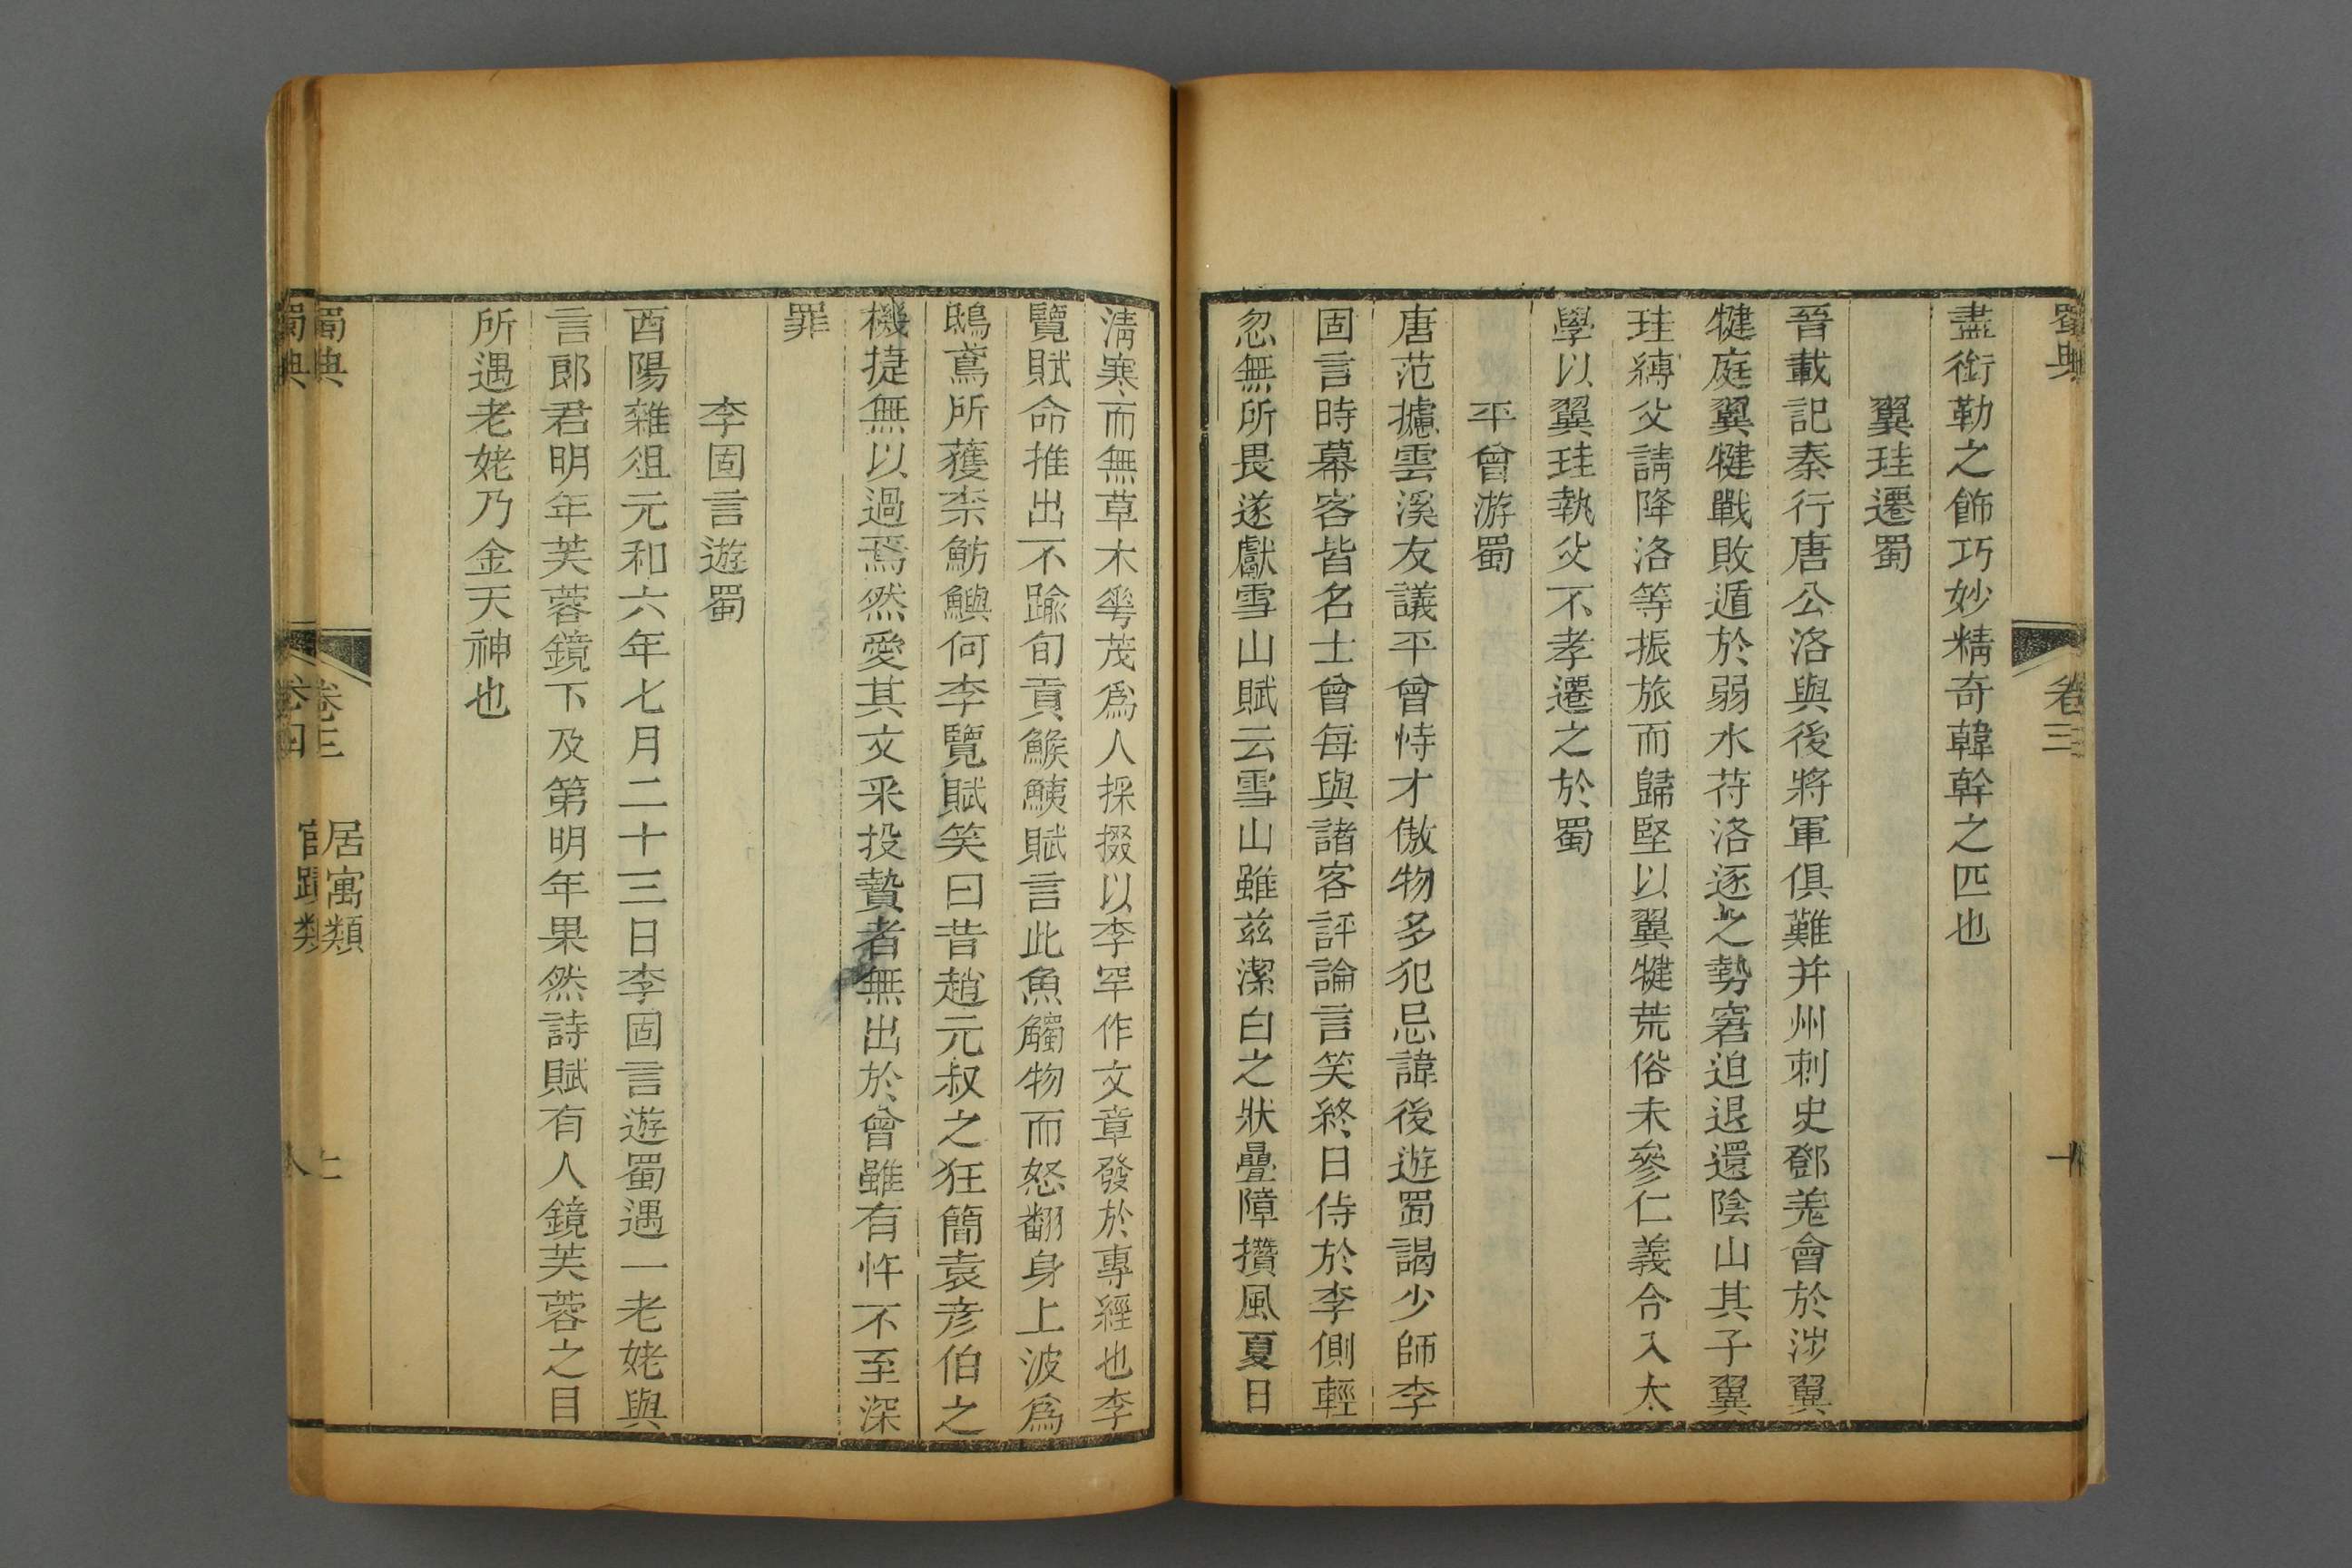 蜀典 卷三
盡銜勒之飾巧妙精奇韓幹之匹也
翼珪遷蜀
晉載記秦行唐公洛與後將軍俱難并州刺史鄧羗會於涉翼
犍庭翼犍戰敗遁於弱水苻洛逐之勢窘迫退還陰山其子翼
珪縛父請降洛等振旅而歸堅以翼犍荒俗未參仁義令入太
學以翼珪執父不孝遷之於蜀
平曾游蜀
唐范攄雲溪友議平曾恃才傲物多犯忌諱後遊蜀謁少師李
固言時幕客皆名士曾每與諸客評論言笑終日侍於李側輕
忽無所畏遂獻雪山賦云雪山雖兹潔白之狀疊障攢風夏日
淸寒而無草木華茂爲人採掇以李罕作文章發於專經也李
覽賦命推出不踰旬貢鯸鮧賦言此魚觸物而怒翻身上波爲
鴟鳶所獲柰魴鱮何李覽賦笑曰昔趙元叔之狂簡袁彦伯之
機捷無以過焉然愛其文釆投贄者無出於曾雖有忤不至深
罪
李固言遊蜀
酉陽雜俎元和六年七月二十三日李固言遊蜀遇一老姥與
言郎君明年芙蓉鏡下及第明年果然詩賦有人鏡芙蓉之目
所遇老姥乃金天神也
蜀典 卷三 居寓類
蜀典 卷四 官蹟類